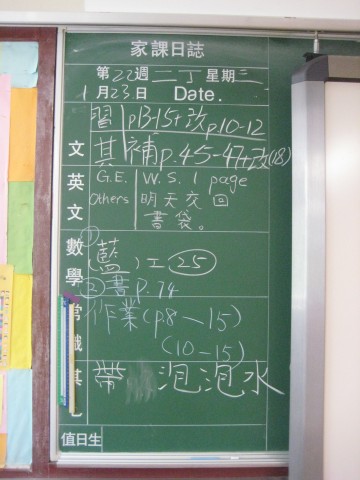 家課日誌
第22週二丁星期三
1月23日 Date.
習 p13-15+改p.10-12
文 其 補p.45-47+改(18)
英 G.E. W.S. 1 page
文 Others 明天交回
書袋。
數 ① (藍) 工 25
學 ② 書p.74
常識 作業(p.8-15)
(10-15)
其 帶 泡泡水
值日生